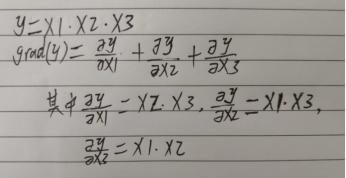 y=X1·X2·X3
grad(y)=∂y/∂X1+∂y/∂X2+∂y/∂X3
其中∂y/∂X1=X2·X3,∂y/∂X2=X1·X3,
∂y/∂X3=X1·X2